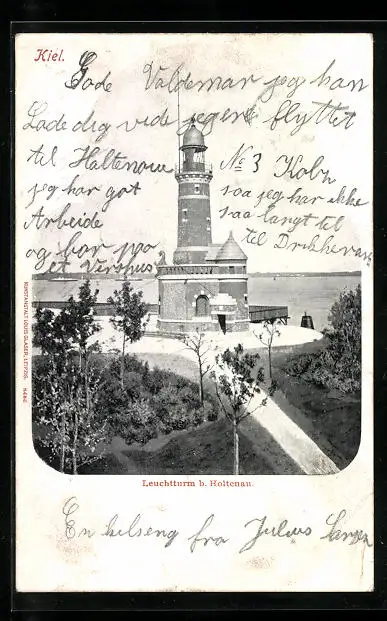 Kiel.
Gode Valdemar jeg han
Lade dig vide jegere flyttet
til Haltenaue No 3 Kobn
jeg har got saa jeg har ikke
Arbeide saa langt til
og bor paa til Drikkevan
et Vershus
KUNSTANSTALT LOUIS GLASER, LEIPZIG.
Leuchtturm b. Holtenau.
En hilseng fra Julius Larsen